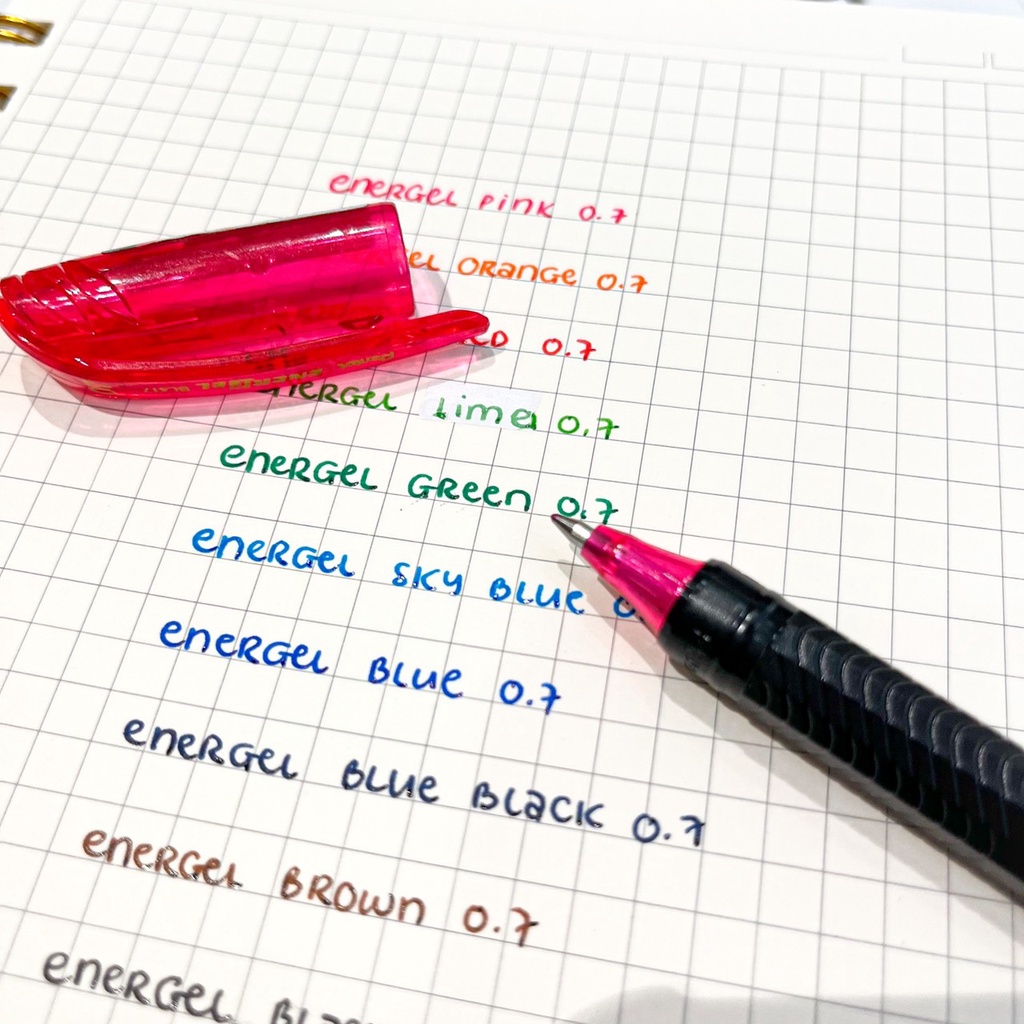 energel pink 0.7
orange 0.7
0.7
energel lima 0.7
energel green 0.7
energel sky blue
energel blue 0.7
energel blue black 0.7
energel brown 0.7
energel